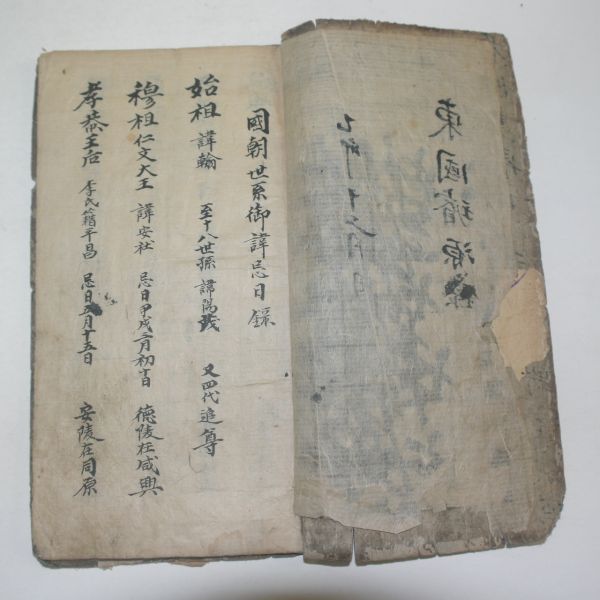 東國璿源錄
乙卯十二月日
國朝世系御諱忌日錄
始祖 諱翰 至十八世孫 諱陽茂 又四代追尊
穆祖仁文大王 諱安社 忌日甲戌三月初十日 德陵在咸興
孝恭王后 李氏籍平昌 忌日五月十五日 安陵在同原